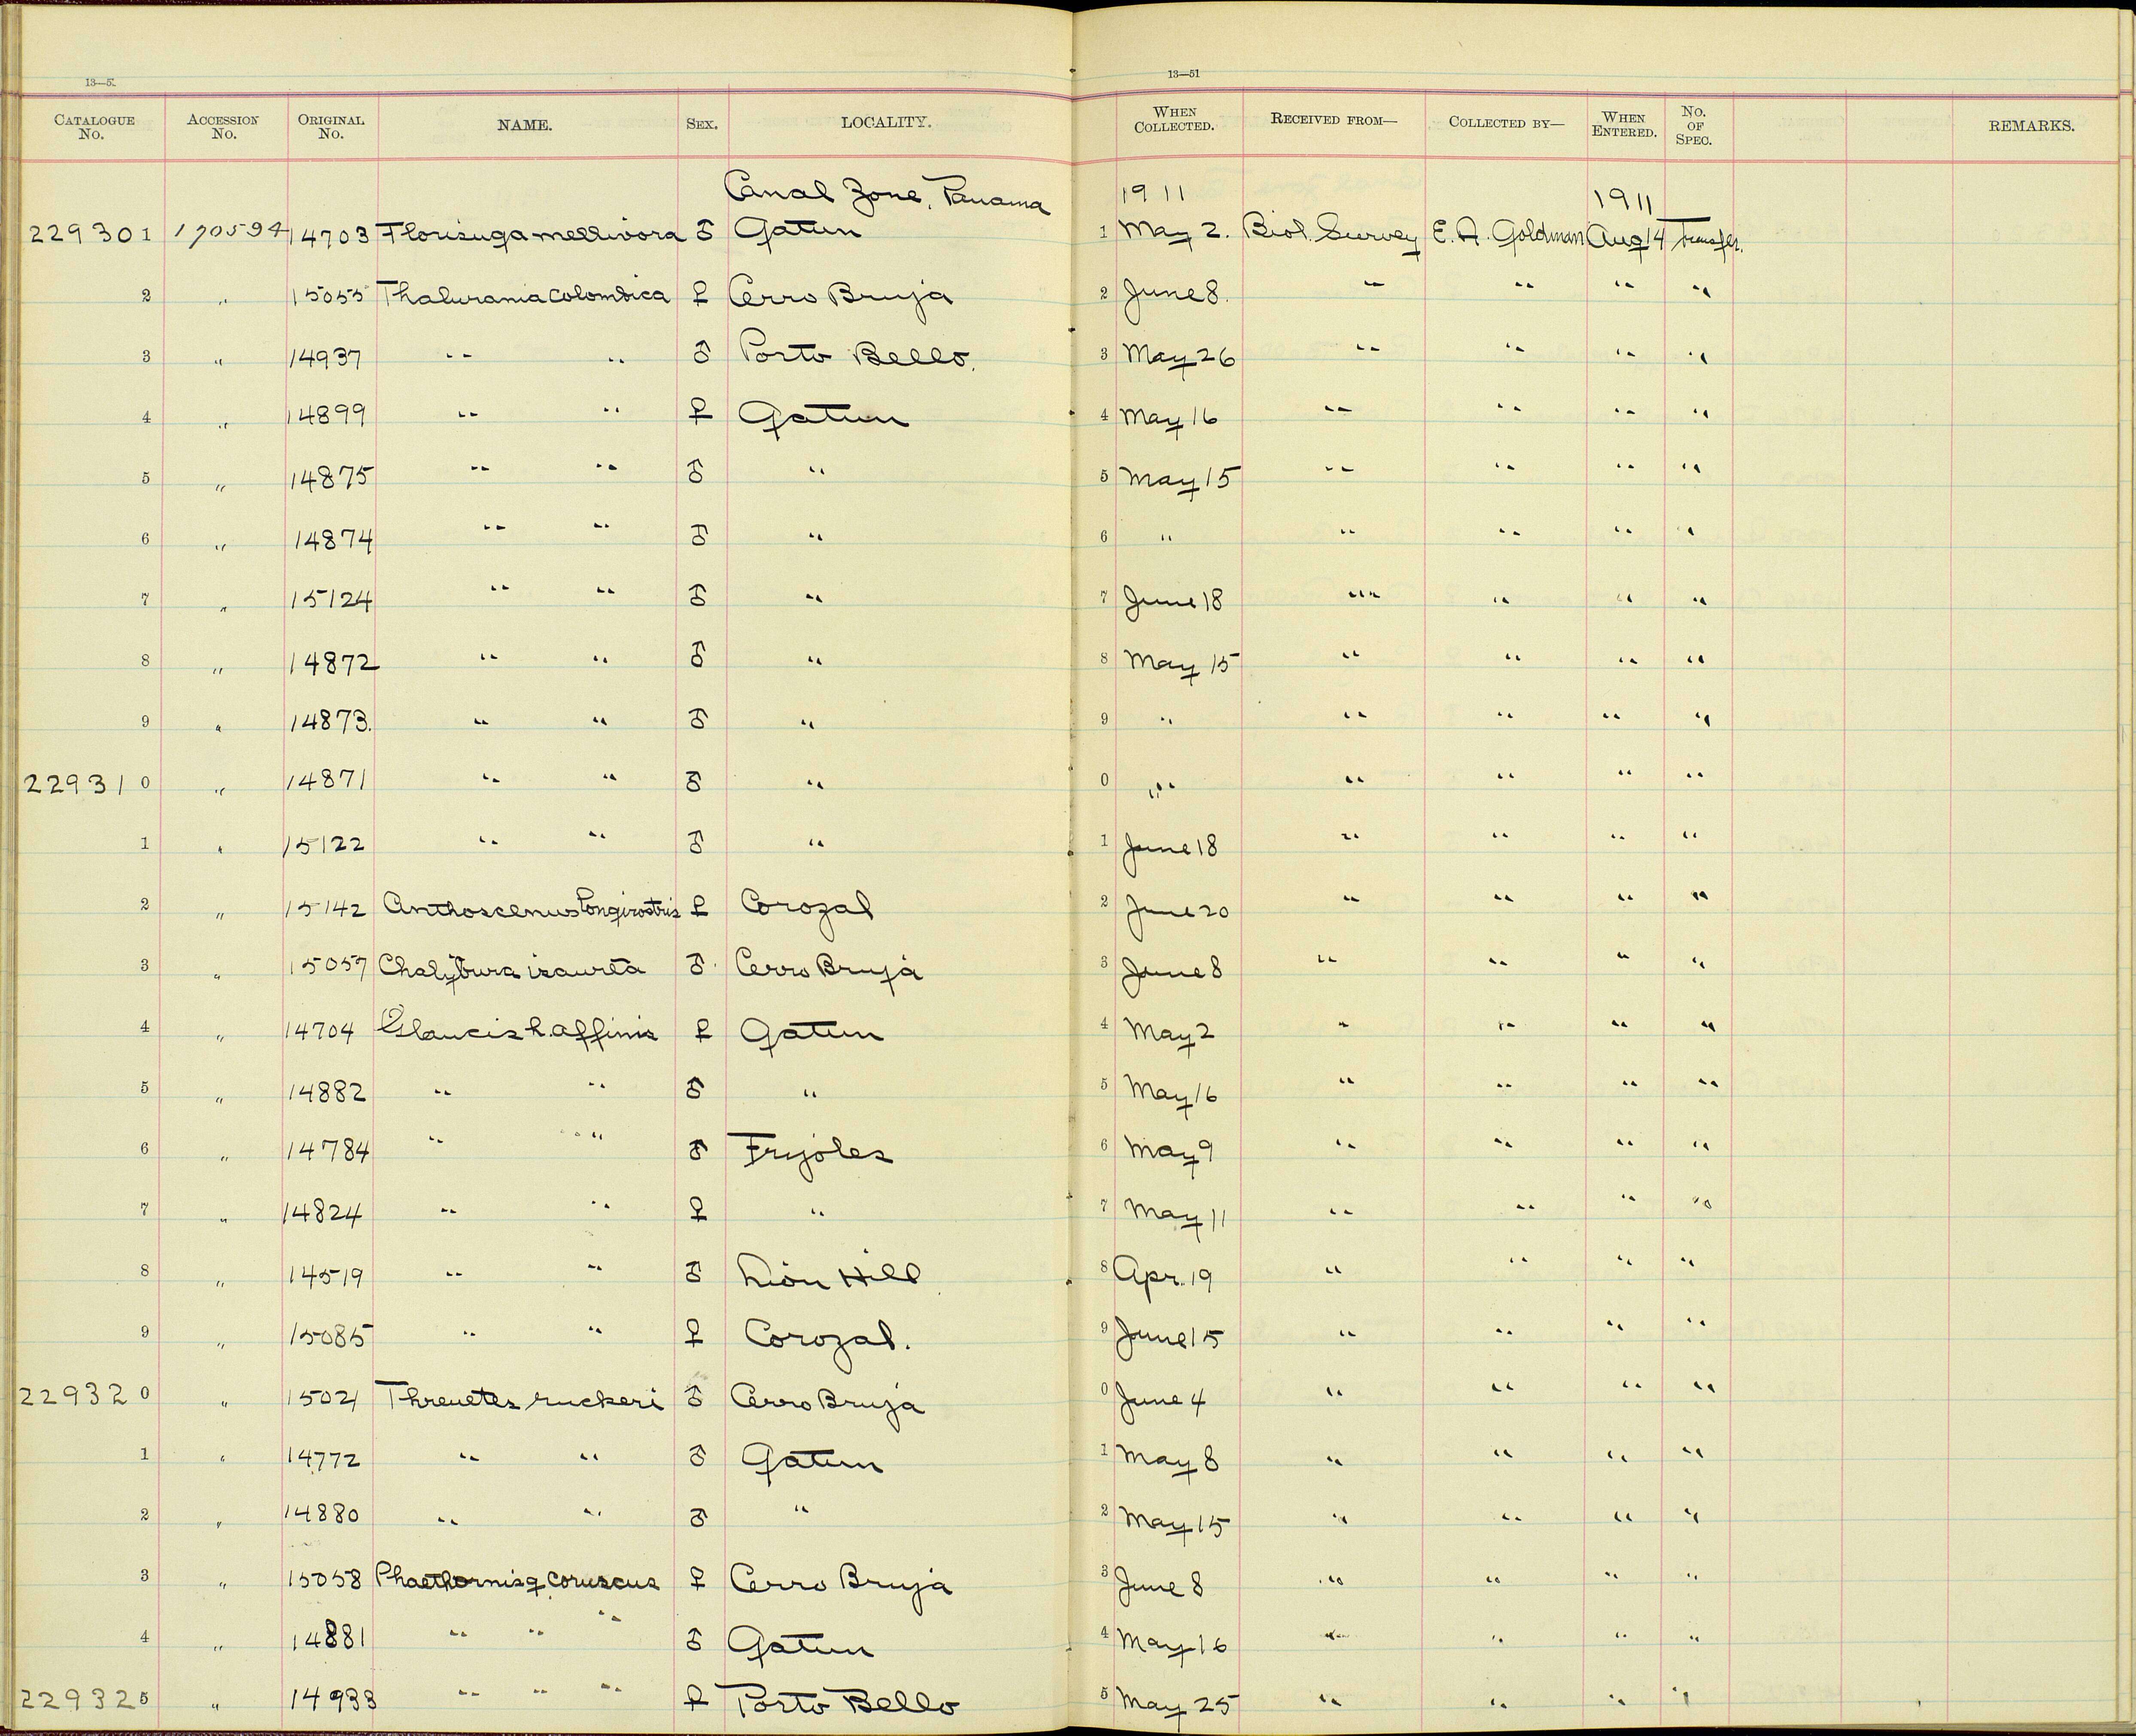 13—5
13—51
CATALOGUE No. ACCESSION No. ORIGINAL No. NAME. SEX. LOCALITY. WHEN COLLECTED. RECEIVED FROM— COLLECTED BY— WHEN ENTERED. No. OF SPEC. REMARKS.
Canal Zone, Panama 1911 1911
229301 170594 14703 Florisuga mellivora ♂ Gatun 1 May 2. Biol. Survey E. A. Goldman Aug 14 Transfer.
2 " 15055 Thalurania colombica ♀ Cerro Bruja 2 June 8. " " " "
3 " 14937 " " ♂ Porto Bello. 3 May 26 " " " "
4 " 14899 " " ♀ Gatun 4 May 16 " " " "
5 " 14875 " " ♂ " 5 May 15 " " " "
6 " 14874 " " ♂ " 6 " " " " "
7 " 15124 " " ♂ " 7 June 18 " " " "
8 " 14872 " " ♂ " 8 May 15 " " " "
9 " 14873. " " ♂ " 9 " " " " "
229310 " 14871 " " ♂ " 0 " " " " "
1 " 15122 " " ♂ " 1 June 18 " " " "
2 " 15142 Anthoscenus longirostris ♀ Corozal 2 June 20 " " " "
3 " 15057 Chalybura isaurea ♂ Cerro Bruja 3 June 8 " " " "
4 " 14704 Glaucis h. affinis ♀ Gatun 4 May 2 " " " "
5 " 14882 " " ♂ " 5 May 16 " " " "
6 " 14784 " " ♂ Frijoles 6 May 9 " " " "
7 " 14824 " " ♀ " 7 May 11 " " " "
8 " 14519 " " ♂ Lion Hill 8 Apr. 19 " " " "
9 " 15085 " " ♀ Corozal. 9 June 15 " " " "
229320 " 15021 Threnetes ruckeri ♂ Cerro Bruja 0 June 4 " " " "
1 " 14772 " " ♂ Gatun 1 May 8 " " " "
2 " 14880 " " ♂ " 2 May 15 " " " "
3 " 15058 Phaethornis g. coruscus ♀ Cerro Bruja 3 June 8 " " " "
4 " 14881 " " " ♂ Gatun 4 May 16 " " " "
229325 " 14933 " " " ♀ Porto Bello 5 May 25 " " " "